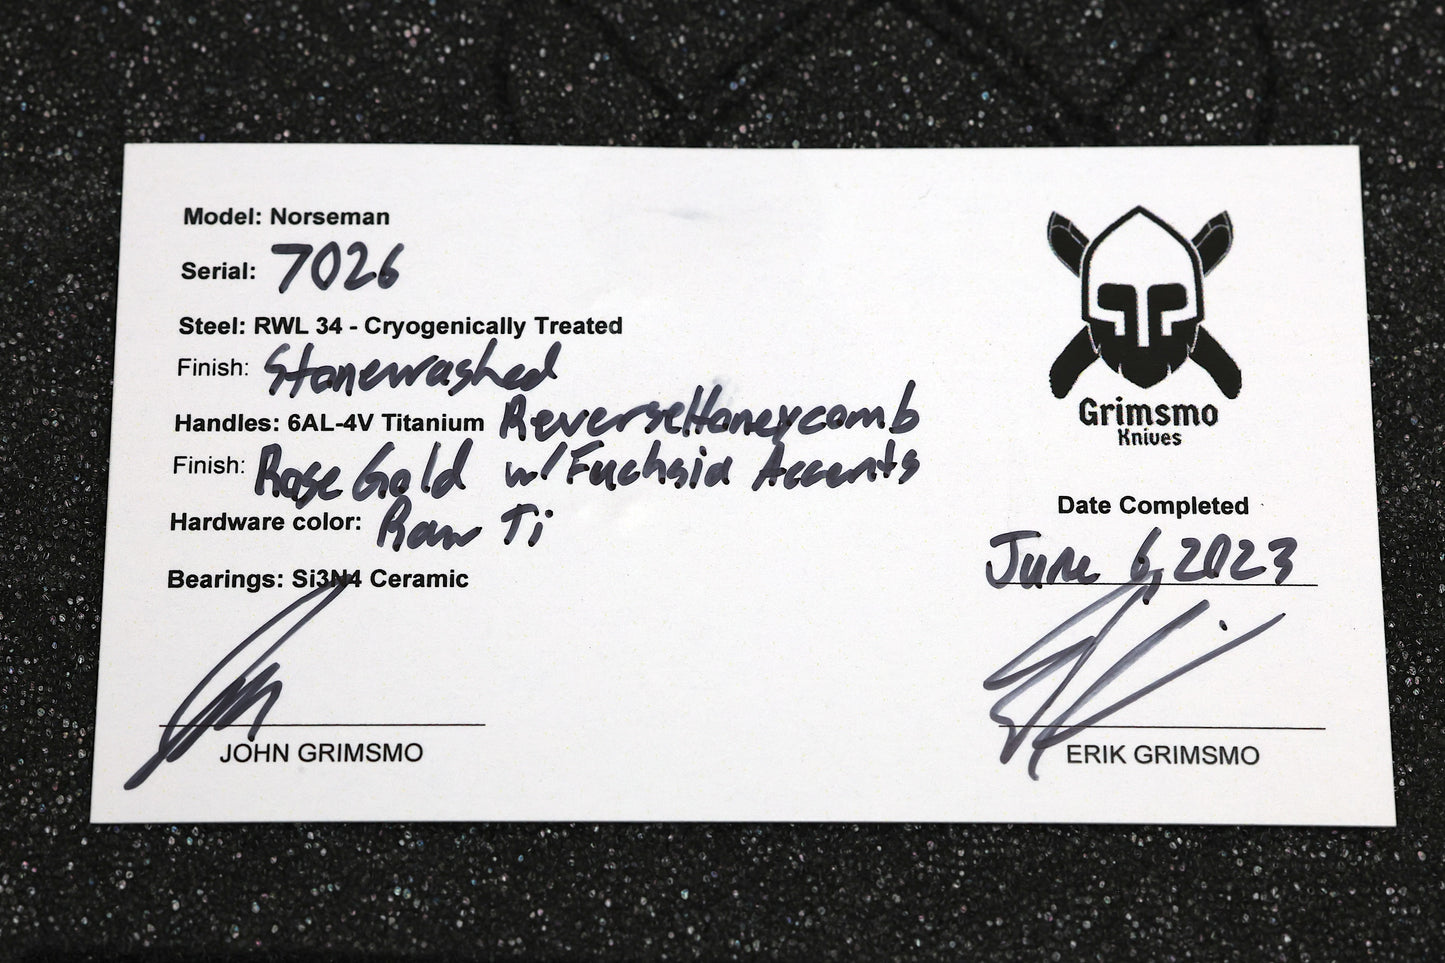 Model: Norseman
Serial: 7026
Steel: RWL 34 - Cryogenically Treated
Finish: Stonewashed
Handles: 6AL-4V Titanium Reverse Honeycomb
Finish: Rose Gold w/ Fuchsia Accents
Hardware color: Raw Ti
Bearings: Si3N4 Ceramic
JOHN GRIMSMO
Grimsmo
Knives
Date Completed
June 6, 2023
ERIK GRIMSMO